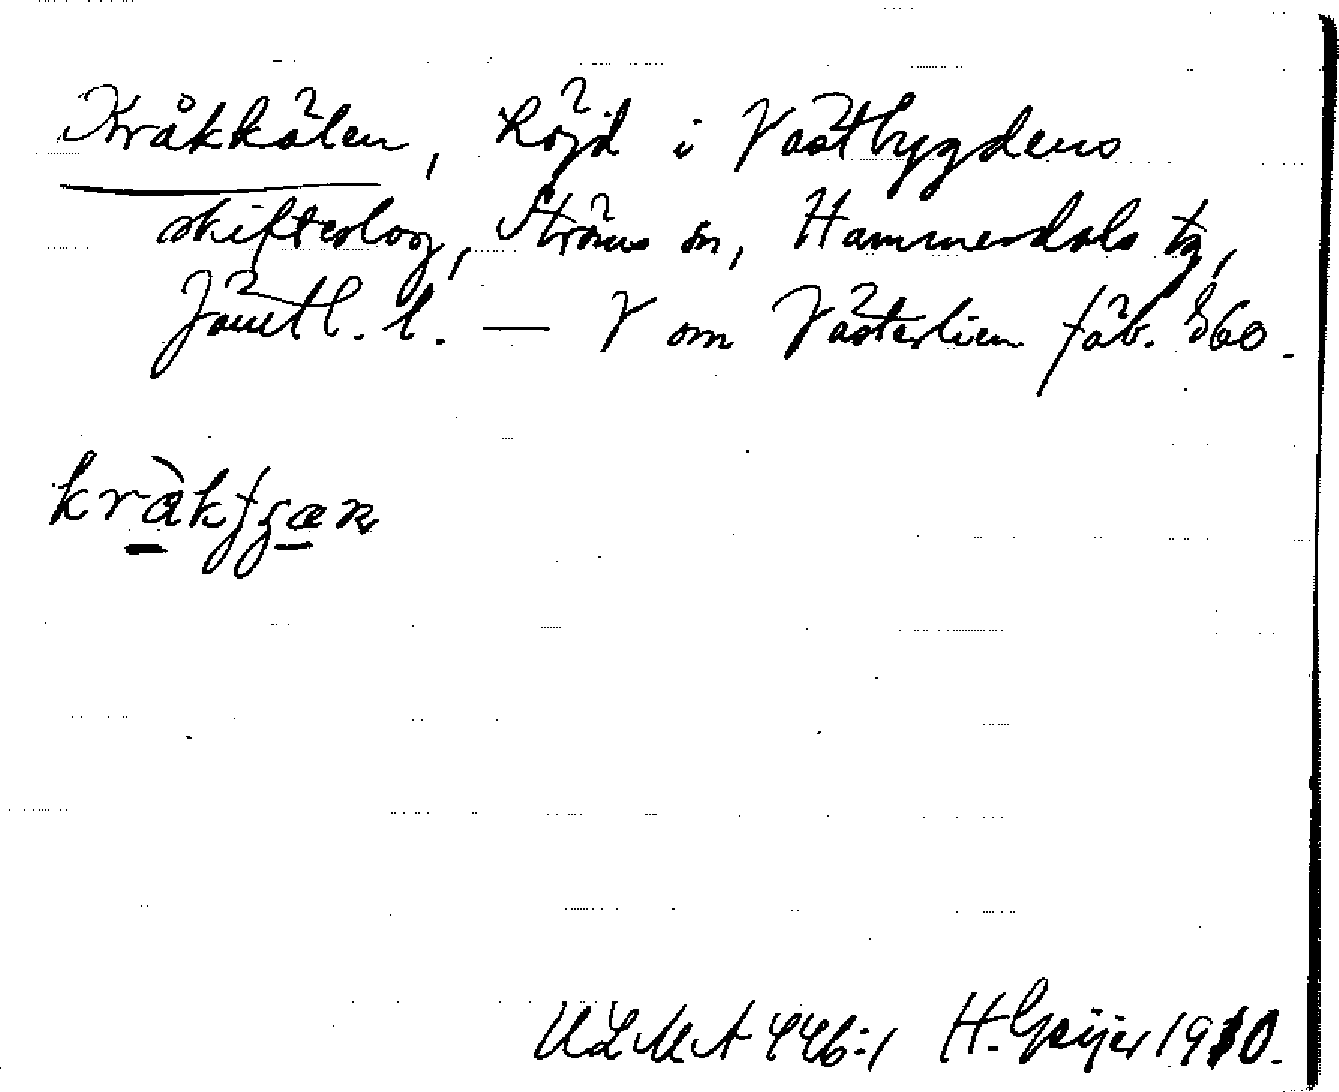 Kråkkälen, höjd i Västbygdens
skifteslag, Ströms sn, Hammerdals tg,
Jämtl. l. — V om Västerlien fäb. 860.
ULMA 446:1 H. Geijer 1910.